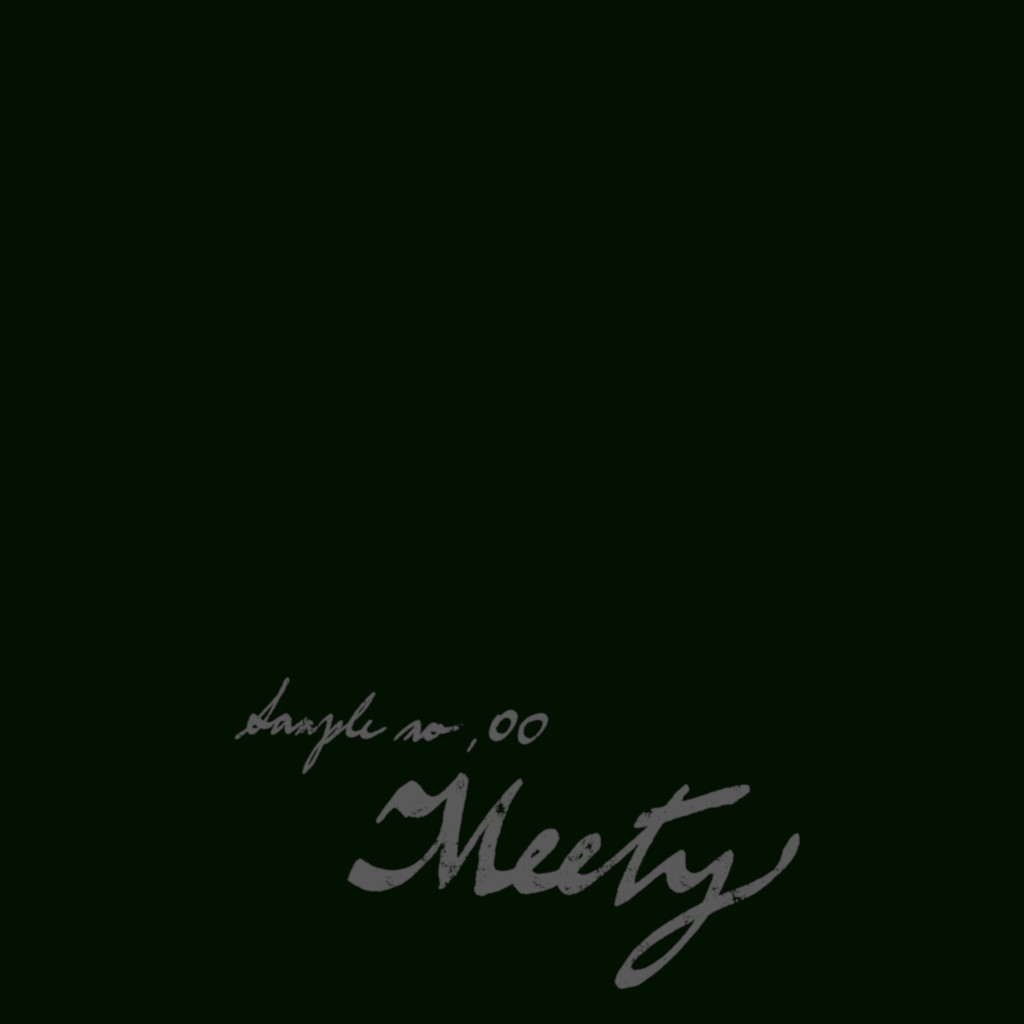 Sample no,00
Meety